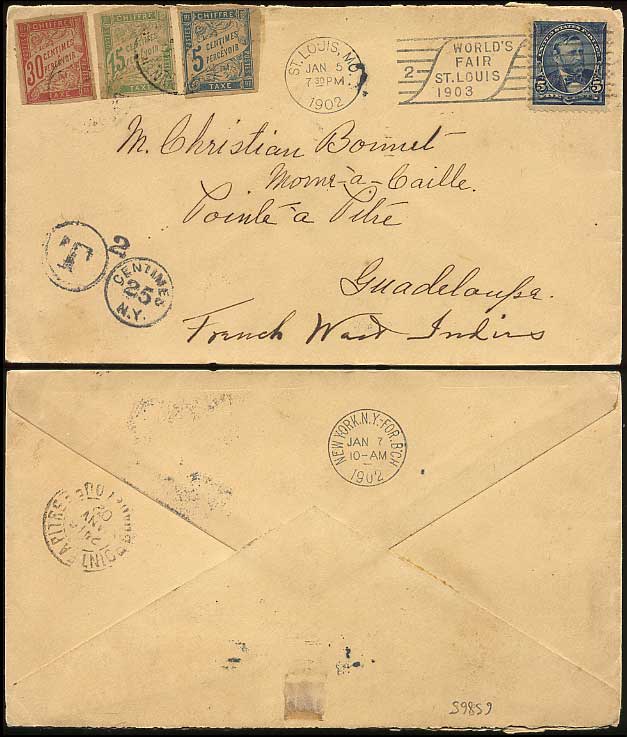 CHIFFRE
30
CENTIMES
À PERCEVOIR
TAXE
CHIFFRE
15
CENTIMES
À PERCEVOIR
TAXE
CHIFFRE
5
CENTIMES
À PERCEVOIR
TAXE
ST. LOUIS, MO.
JAN 5
7 30 PM
1902
2
WORLD'S
FAIR
ST. LOUIS
1903
5
M. Christian Bonnet
Morne-à-Caille.
Pointe-à Pitre
Guadeloupe.
French West Indies
T
2
CENTIMES
25
N.Y.
NEW YORK, N.Y.-FOR. BCH
JAN 7
10-AM
1902
JANV
02
59865